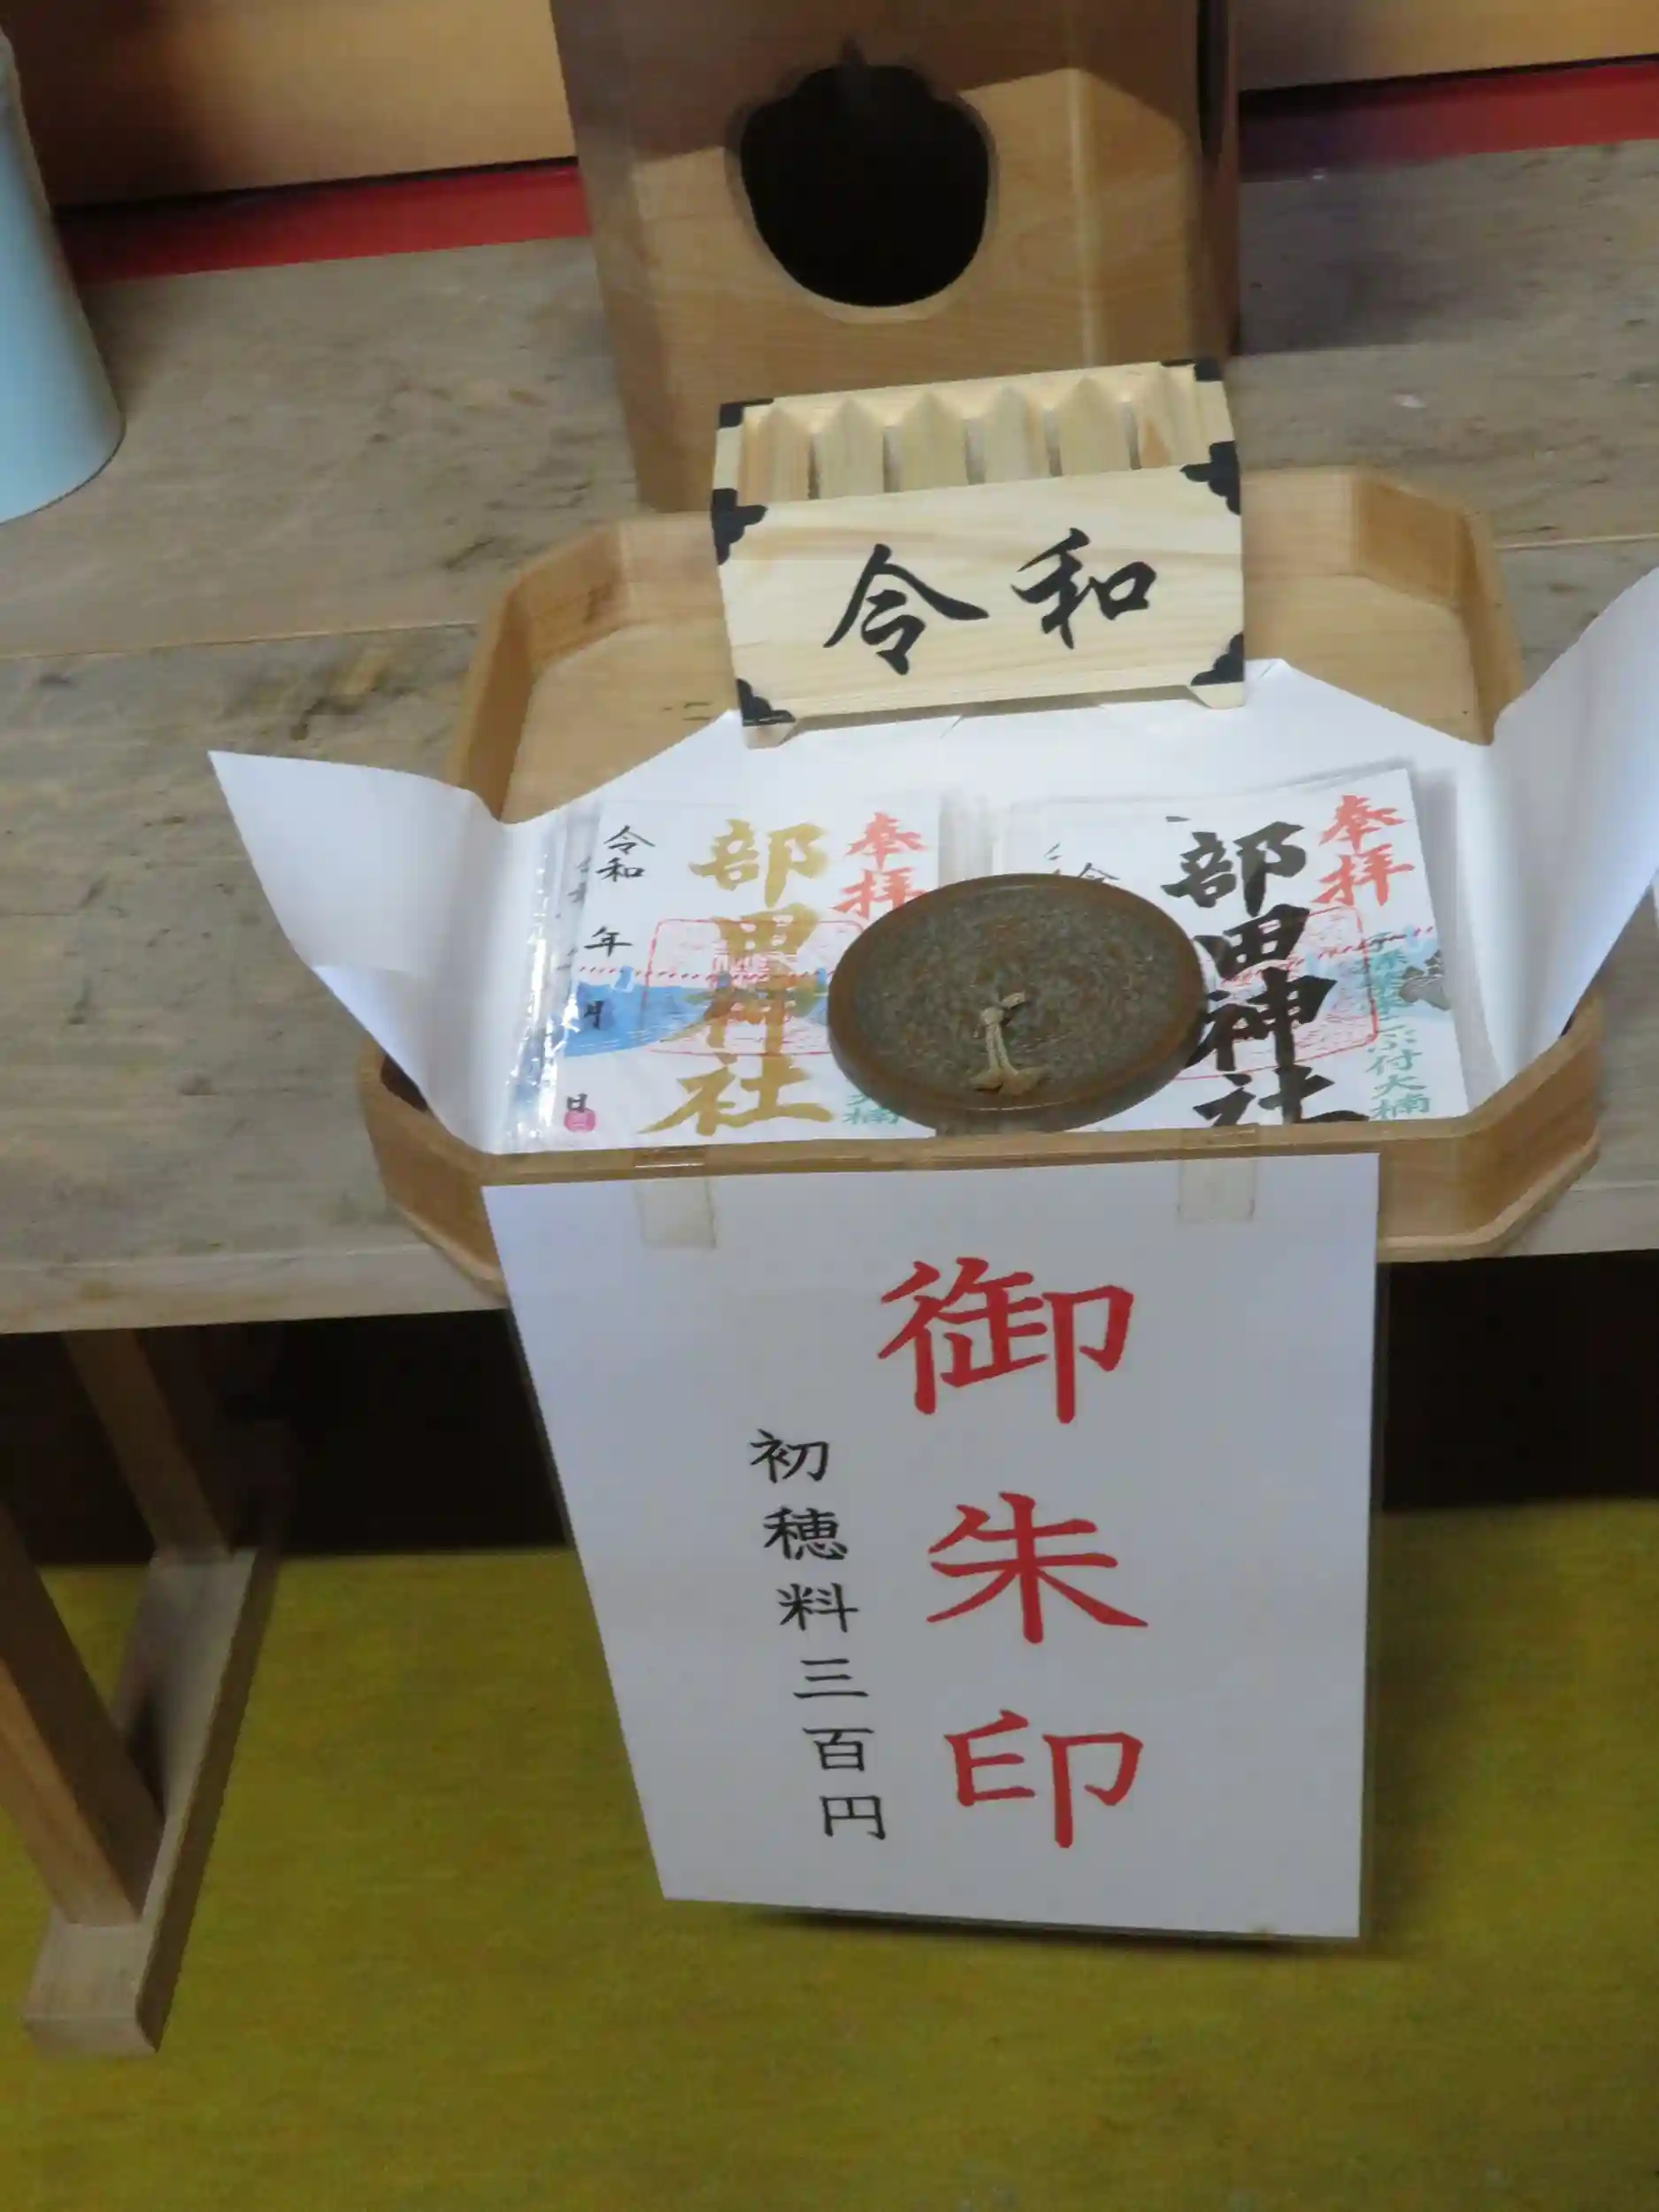 令和
奉拝
部田神社
令和
年
月
日
奉拝
部田神社
付大楠
御朱印
初穂料三百円